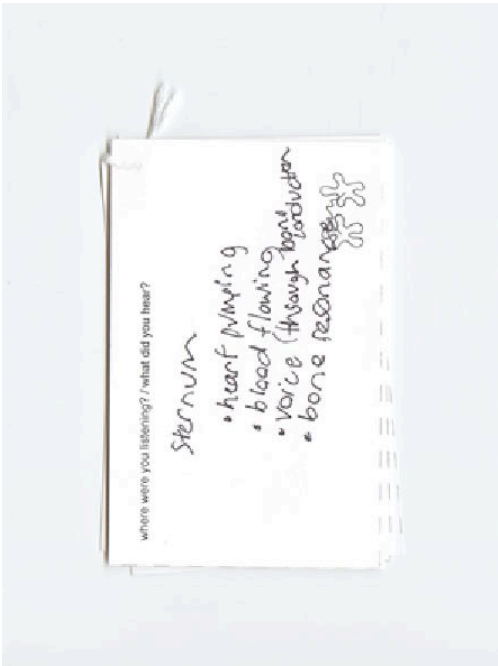 where were you listening? / what did you hear?
sternum
• heart pumping
• blood flowing
• voice (through bone conduction
• bone resonance